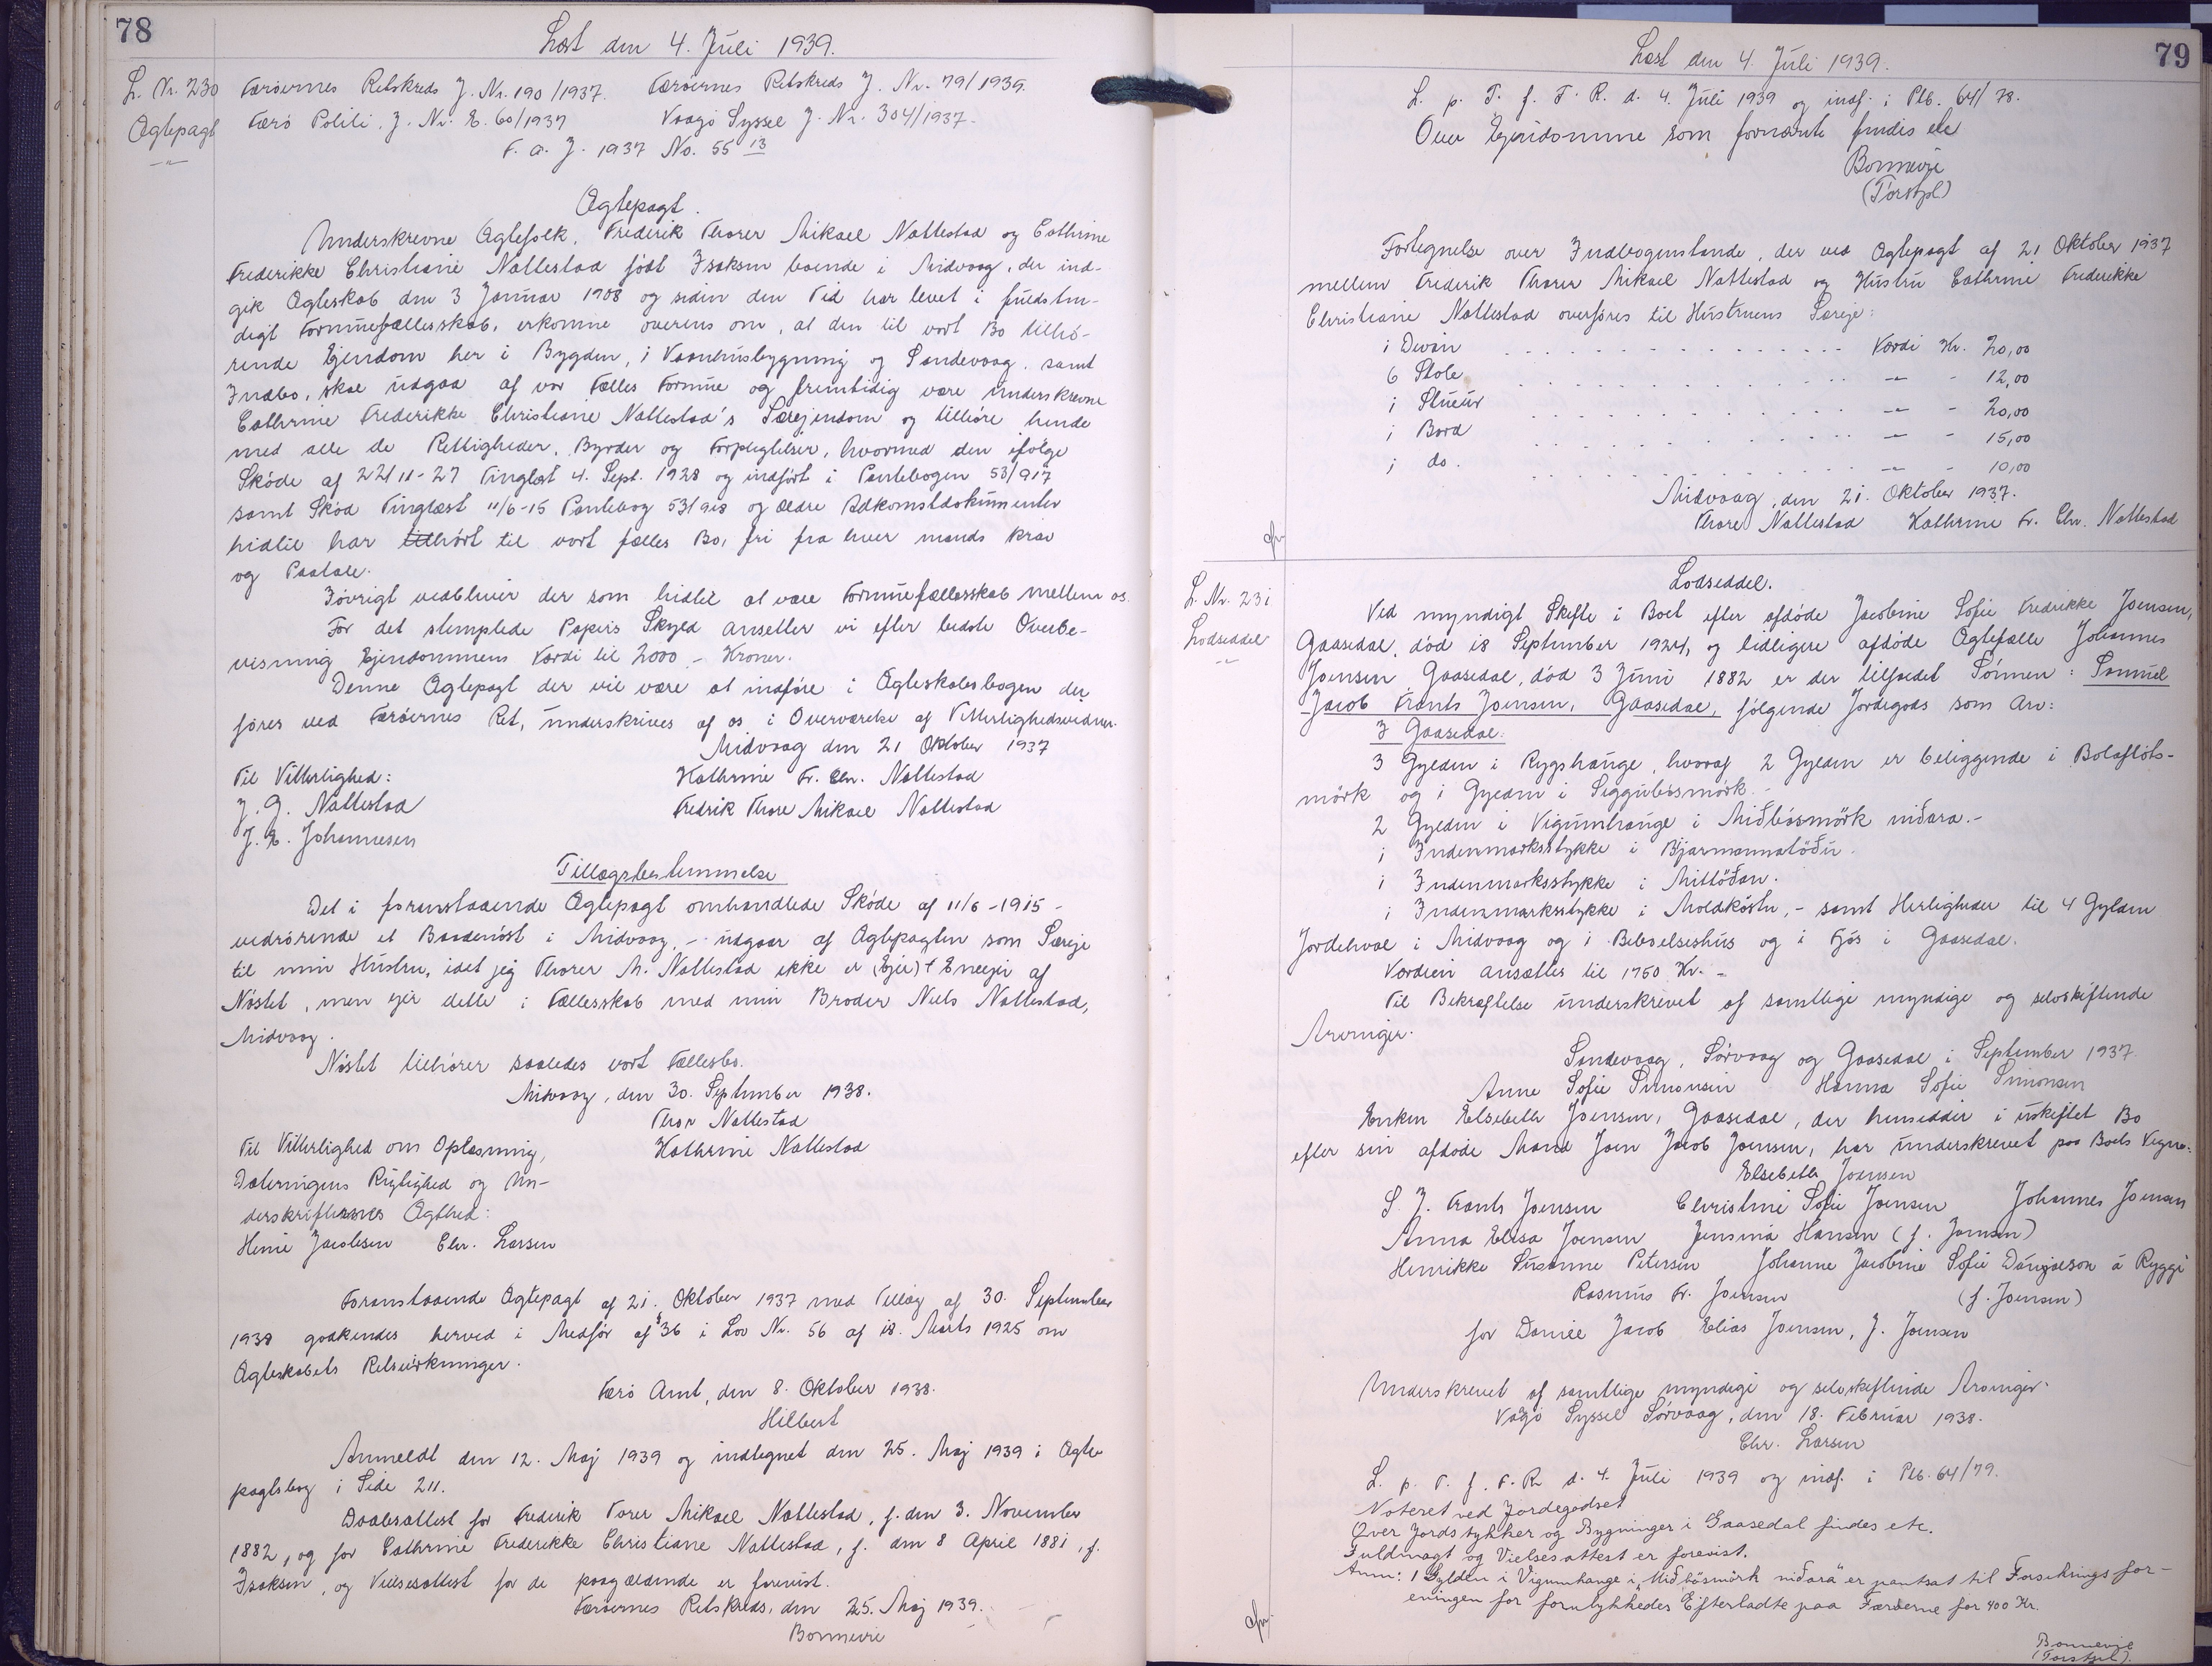 78
Læst den 4. Juli 1939.
L. Nr. 230
Ægtepagt
Færøernes Retskreds J. Nr. 190/1937. Færøernes Retskreds J. Nr. 79/1939.
Færø Politi. J. Nr. E. 60/1937 Vaagø Syssel J. Nr. 304/1937.
F. a. J. 1937 No. 55 13
Ægtepagt.
Underskrevne Ægtefolk, Frederik Thorer Mikael Nattestad og Cathrine
Frederikke Christiane Nattestad født Isaksen boende i Midvaag, der ind-
gik Ægteskab den 3 Januar 1908 og siden den Tid har levet i fuldstæn-
digt Formuefællesskab, erkomme overens om, at den til vort Bo tilhø-
rende Ejendom her i Bygden, i Vaanhusbygning og Sandevaag, samt
Indbo, skal udgaa af vor Fælles Formue og fremtidig være underskrevne
Cathrine Frederikke Christiane Nattestad's Særejendom og tilhøre hende
med alle de Rettigheder, Byrder og Forpligtelser, hvormed den ifølge
Skøde af 22/11-27 Tinglæst 4. Sept. 1928 og indført i Pantebogen 53/917
samt Skød Tinglæst 11/6-15 Pantebog 53/918 og ældre Adkomstdokumenter
hidtil har tilhørt til vort fælles Bo, fri fra hver mands Krav
og Paatale.
Iøvrigt vedbliver der som hidtil at være Formuefællesskab mellem os.
For det stemplede Papirs Skyld ansetter vi efter bedste Overbe-
visning Ejendommens Værdi til 2000 - Kroner.
Denne Ægtepagt der vil være at indføre i Ægteskabsbogen der
føres ved Færøernes Ret, underskrives af os i Overværelse af Vitterlighedsvidner.
Midvaag den 21 Oktober 1937
Til Vitterlighed: Kathrine Fr. Chr. Nattestad
J. J. Nattestad Fredrik Thore Mikael Nattestad
J. E. Johannesen
Tillægsbestemmelse
Det i foranstaaende Ægtepagt omhandlede Skøde af 11/6-1915 -
vedrørende et Baadenøst i Midvaag, - udgaar af Ægtepagten som Særeje
til min Hustru, idet jeg Thorer M. Nattestad ikke er (Ejer) + Eneejer af
Nøstet, men ejer dette i Fællesskab med min Broder Niels Nattestad,
Midvaag.
Nøstet tilhører saaledes vort Fællesbo.
Midvaag, den 30. September 1938.
Thor Nattestad
Til Vitterlighed om Oplæsning, Kathrine Nattestad
Dateringens Rigtighed og Un-
derskrifternes Ægthed:
Henie Jacobsen Chr. Larsen
Foranstaaende Ægtepagt af 21. Oktober 1937 med Tillæg af 30. September
1938 godkendes herved i Medfør af § 36 i Lov Nr. 56 af 18. Marts 1925 om
Ægteskabets Retsvirkninger.
Færø Amt, den 8. Oktober 1938.
Hilbert
Anmeldt den 12. Maj 1939 og indtegnet den 25. Maj 1939 i Ægte-
pagtsbog i Side 211.
Daabsattest for Frederik Torer Mikael Nattestad, f. den 3. November
1882, og for Cathrine Frederikke Christiane Nattestad, f. den 8 April 1881, f.
Isaksen, og Vielsesattest for de paagældende er forevist.
Færøernes Retskreds, den 25. Maj 1939.
Bonnevie
79
Læst den 4. Juli 1939.
L. p. T. f. F. R. d. 4. Juli 1939 og indf. i Ptb. 64/78.
Over Ejendomme som fornævnte findes etc
Bonnevie
(Torshpl)
Fortegnelse over Indbogenstande, der ved Ægtepagt af 21 Oktober 1937
mellem Frederik Thorer Mikael Nattestad og Hustru Cathrine Frederikke
Christiane Nattestad overføres til Hustruens Særeje:
1 Divan Værdi Kr. 20,00
6 Stole - - 12,00
1 Stueur - - 20,00
1 Bord - - 15,00
1 do. - - 10,00
Midvaag, den 21. Oktober 1937.
Thore Nattestad Kathrine Fr. Chr. Nattestad
L. Nr. 231
Lodseddel
Lodseddel.
Ved myndigt Skifte i Boet efter afdøde Jacobine Sofie Fredrikke Joensen,
Gaasedal, død 18 September 1924, og tidligere afdøde Ægtefælle Johannes
Joensen Gaasedal, død 3 Juni 1882 er der tilfaldet Sønnen: Samuel
Jacob Frants Joensen, Gaasedal, følgende Jordegods som Arv:
I Gaasedal:
3 Gylden i Rygshauge, hvoraf 2 Gylden er beliggende i Bolaflöts-
mörk og 1 Gylden i Siggubösmörk.-
2 Gylden i Vigumhauge i Miðbösmörk niðara.-
1 Indenmarksstykke i Bjarmannatöðu.
1 Indenmarksstykke i Mittöðan.
1 Indenmarksstykke i Moldköstu, - samt Herligheder til 4 Gylden
Jordehval i Midvaag og i Beboelseshus og i Fjós i Gaasedal.
Værdien ansættes til 1750 Kr. -
Til Bekræftelse underskrevet af samtlige myndige og selvskiftende
Arvinger.
Sandevaag, Sörvaag og Gaasedal i September 1937.
Anne Sofie Simonsen Hanna Sofie Simonsen
Enken Elsebeth Joensen, Gaasedal, der hensidder i uskiftet Bo
efter sin afdøde Mand Joen Jacob Joensen, har underskrevet paa Boets Vegne:
Elsebeth Joensen
S. J. Frants Joensen Christine Sofie Joensen Johannes Joensen
Anna Elisa Joensen Jensina Hansen (f. Joensen)
Henrikke Susanne Petersen Johanne Jacobine Sofie Dánjalson á Ryggi
Rasmus Fr. Joensen (f. Joensen)
for Daniel Jacob Elias Joensen, J. Joensen
Underskrevet af samtlige myndige og selvskiftende Arvinger.
Vágø Syssel Sørvaag, den 18. Februar 1938.
Chr. Larsen
L. p. T. f. F. R. d. 4. Juli 1939 og indf. i Ptb. 64/79.
Noteret ved Jordegodset
Over Jordstykker og Bygninger i Gaasedal findes etc.
Fuldmagt og Vielsesattest er forevist.
Anm: 1 Gylden i Vigumhauge i "Miðbösmörk niðara" er pantsat til Forsikringsfor-
eningen for forulykkedes Efterladte paa Færøerne for 400 Kr.
Bonnevie
(Torshpl).